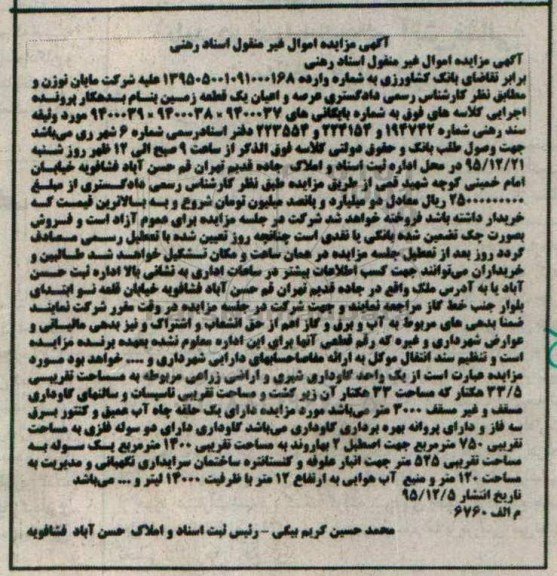 آگهی مزایده اموال غیر منقول اسناد رهنی
آگهی مزایده اموال غیر منقول اسناد رهنی
برابر تقاضای بانک کشاورزی به شماره وارده ۱۳۹۵۰۵۰۰۱۰۹۱۰۰۰۱۶۸ علیه شرکت مایان توژن و
مطابق نظر کارشناس رسمی دادگستری عرصه و اعیان یک قطعه زمین بنام بدهکار پرونده
اجرایی کلاسه های فوق به شماره بایگانی های ۹۴۰۰۰۳۷ × ۹۴۰۰۰۳۸ × ۹۴۰۰۰۳۹ مورد وثیقه
سند رهنی شماره ۱۹۴۷۳۲ و ۲۲۴۱۵۴ و ۲۲۳۵۵۴ دفتر اسنادرسمی شماره ۶ شهر ری می‌باشد
جهت وصول طلب بانک و حقوق دولتی کلاسه فوق الذکر از ساعت ۹ صبح الی ۱۲ ظهر روز شنبه
۹۵/۱۲/۲۱ در محل اداره ثبت اسناد و املاک جاده قدیم تهران قم حسن آباد فشافویه خیابان
امام خمینی کوچه شهید قمی از طریق مزایده طبق نظر کارشناس رسمی دادگستری از مبلغ
۲۵۰۰۰۰۰۰۰۰ ریال معادل دو میلیارد و پانصد میلیون تومان شروع و به بالاترین قیمت که
خریدار داشته باشد فروخته خواهد شد شرکت در جلسه مزایده برای عموم آزاد است و فروش
بصورت چک تضمین شده بانکی یا نقدی است چنانچه روز تعیین شده با تعطیل رسمی مصادف
گردد روز بعد از تعطیل جلسه مزایده در همان ساعت و مکان تشکیل خواهد شد طالبین و
خریداران می‌توانند جهت کسب اطلاعات بیشتر در ساعات اداری به نشانی بالا اداره ثبت حسن
آباد یا به آدرس ملک واقع در جاده قدیم تهران قم حسن آباد فشافویه خیابان قلعه نو ابتدای
بلوار جنب خط گاز مراجعه نمایند و جهت شرکت در جلسه مزایده در وقت مقرر شرکت نمایند
ضمنا بدهی های مربوط به آب و برق و گاز اعم از حق انشعاب و اشتراک و نیز بدهی مالیاتی و
عوارض شهرداری و غیره که رقم قطعی آنها برای این اداره معلوم نشده بعهده برنده مزایده
است و تنظیم سند انتقال موکل به ارائه مفاصاحسابهای دارایی شهرداری و .... خواهد بود مورد
مزایده عبارت است از یک واحد گاوداری شیری و اراضی زراعی مربوطه به مساحت تقریبی
۳۳/۵ هکتار که مساحت ۳۳ هکتار آن زیر کشت و مساحت تقریبی تاسیسات و سالنهای گاوداری
مسقف و غیر مسقف ۳۰۰۰ متر می‌باشد مورد مزایده دارای یک حلقه چاه آب عمیق و کنتور برق
سه فاز و دارای پروانه بهره برداری گاوداری می‌باشد گاوداری دارای دو سوله فلزی به مساحت
تقریبی ۷۵۰ مترمربع جهت اصطبل ۲ بهاروند به مساحت تقریبی ۱۴۰۰ مترمربع یک سوله به
مساحت تقریبی ۵۲۵ متر جهت انبار علوفه و کنسانتره ساختمان سرایداری نگهبانی و مدیریت به
مساحت ۱۲۰ متر و منبع آب هوایی به ارتفاع ۱۲ متر با ظرفیت ۱۴۰۰۰ لیتر و ... می‌باشد
تاریخ انتشار ۹۵/۱۲/۵
م الف ۶۷۶۰
محمد حسین کریم بیگی – رئیس ثبت اسناد و املاک حسن آباد فشافویه